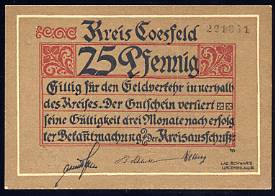 Kreis Coesfeld
25 Pfennig
Giltig für den Geldverkehr innerhalb
des Kreises. Der Gutschein verliert
seine Gültigkeit drei Monate nach erfolg
ter Bekanntmachung Der Kreisausschuß: